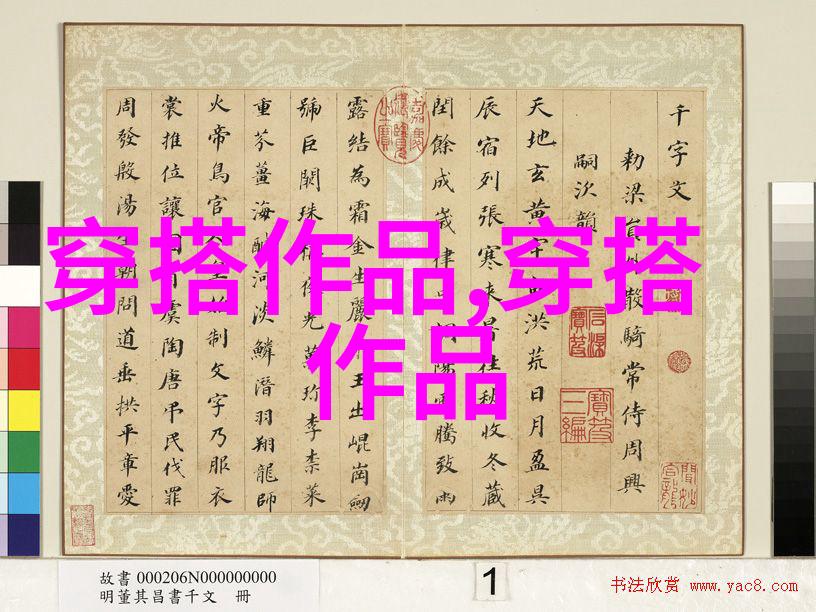 千字文
勅梁員外散騎常侍周興
嗣次韻
天地玄黃宇宙洪荒日月盈昃
辰宿列張寒来暑往秋收冬藏
閏餘成歲律調陽雲騰致雨
露結為霜金生麗水玉出崐崗劔
號巨闕珠稱夜光菓珍李柰菜
重芥薑海鹹河淡鱗潛羽翔龍師
火帝鳥官人皇始制文字乃服衣
裳推位讓國有虞陶唐弔民伐罪
周發殷湯坐朝問道垂拱平章愛
嘉慶御覽之寶
石渠寶笈
寶笈三編
穿搭作品,穿搭
作品
故書 000206N000000000
明董其昌書千文 冊
1
书法欣赏 www.yac8.com